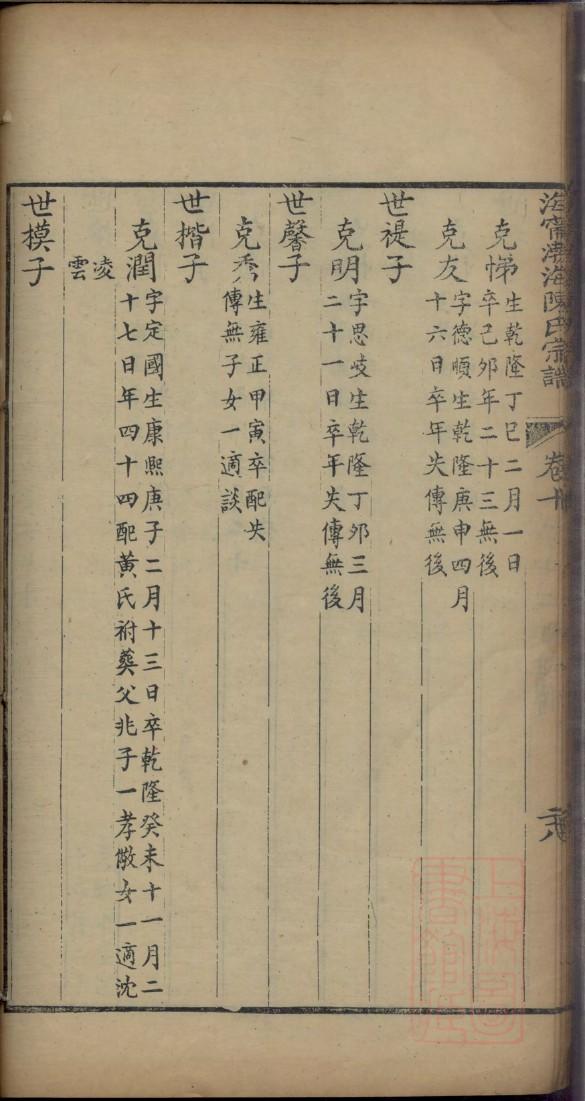 海甯渤海陳氏宗譜
卷十
克悌生乾隆丁巳二月一日
卒己夘年二十三無後
克友字德順生乾隆庚申四月
十六日卒年失傳無後
世禔子
克明字思岐生乾隆丁夘三月
二十一日卒年失傳無後
世馨子
克秀生雍正甲寅卒配失
傳無子女一適談
世揩子
克潤字定國生康熙庚子二月十三日卒乾隆癸未十一月二
十七日年四十四配黃氏祔葬父兆子一孝儆女一適沈
凌
雲
世模子
上海圖
書館藏